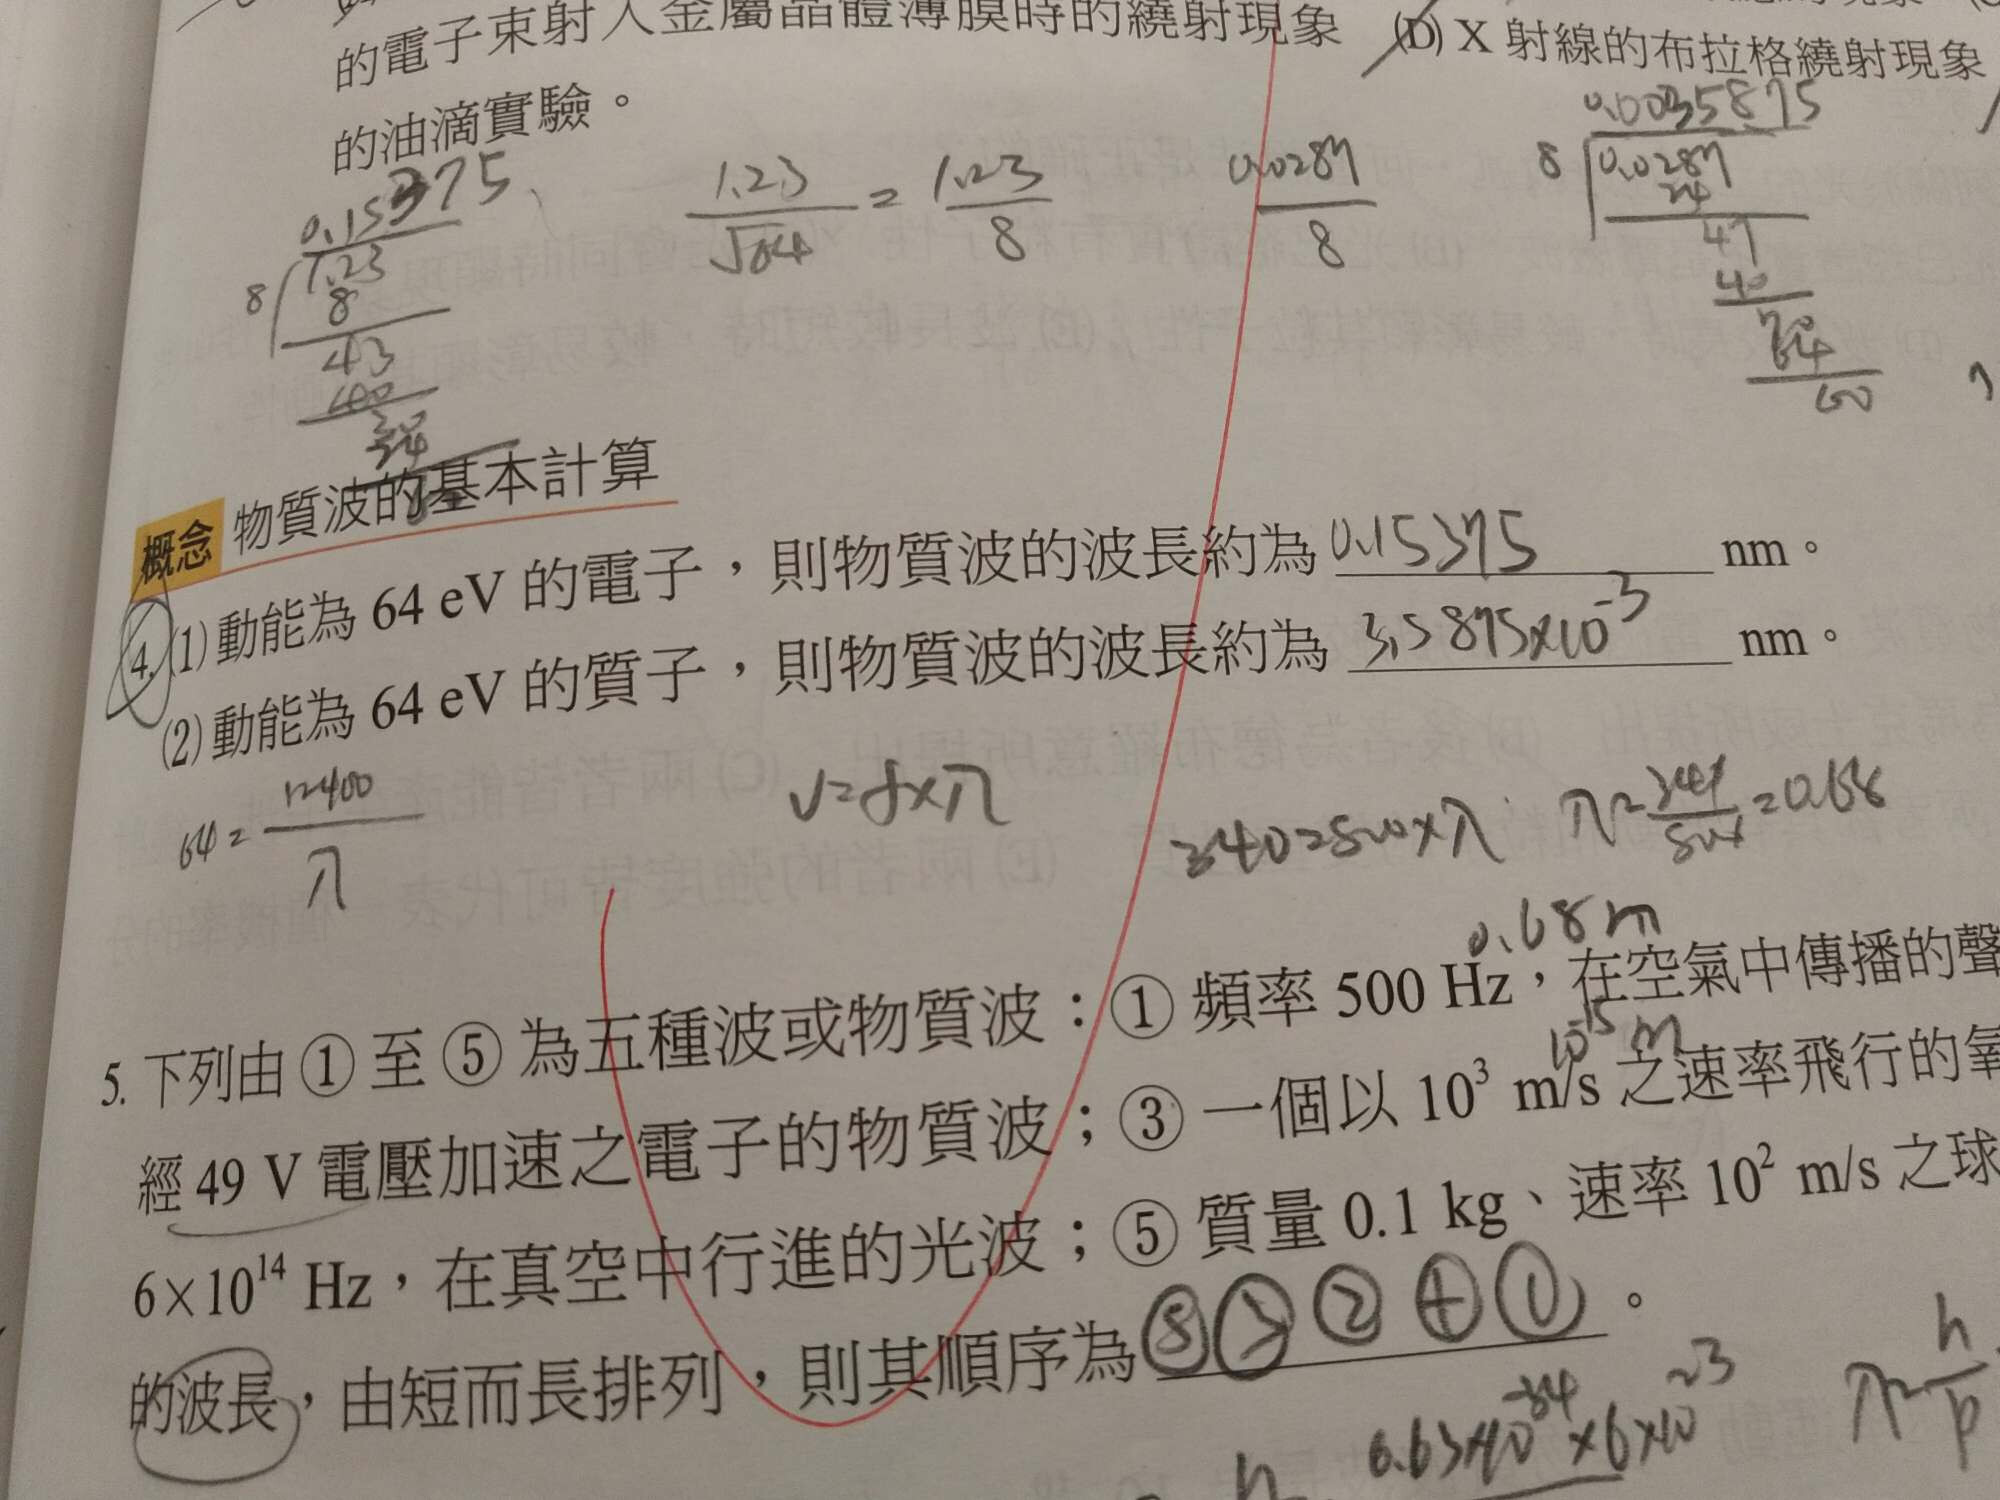 的電子束射入金屬晶體薄膜時的繞射現象 (D) X 射線的布拉格繞射現象
的油滴實驗。
0.15375
8 1.23
8
43
400
30
24
1.23/√64 = 1.23/8
0.0287/8
0.0035875
8 0.0287
24
47
40
70
64
60
概念 物質波的基本計算
4. (1) 動能為 64 eV 的電子，則物質波的波長約為 0.15375 nm。
(2) 動能為 64 eV 的質子，則物質波的波長約為 3.5875×10⁻³ nm。
64 = 12400/λ
v = f×λ
340 = 500×λ λ = 340/500 = 0.68
0.68 m
5. 下列由 ① 至 ⑤ 為五種波或物質波：① 頻率 500 Hz，在空氣中傳播的聲
10⁻¹⁵ m
經 49 V 電壓加速之電子的物質波；③ 一個以 10³ m/s 之速率飛行的氧
6×10¹⁴ Hz，在真空中行進的光波；⑤ 質量 0.1 kg、速率 10² m/s 之球
的波長，由短而長排列，則其順序為 ⑤③②④① 。
λ = h/p
h 6.63×10⁻³⁴×6×10²³